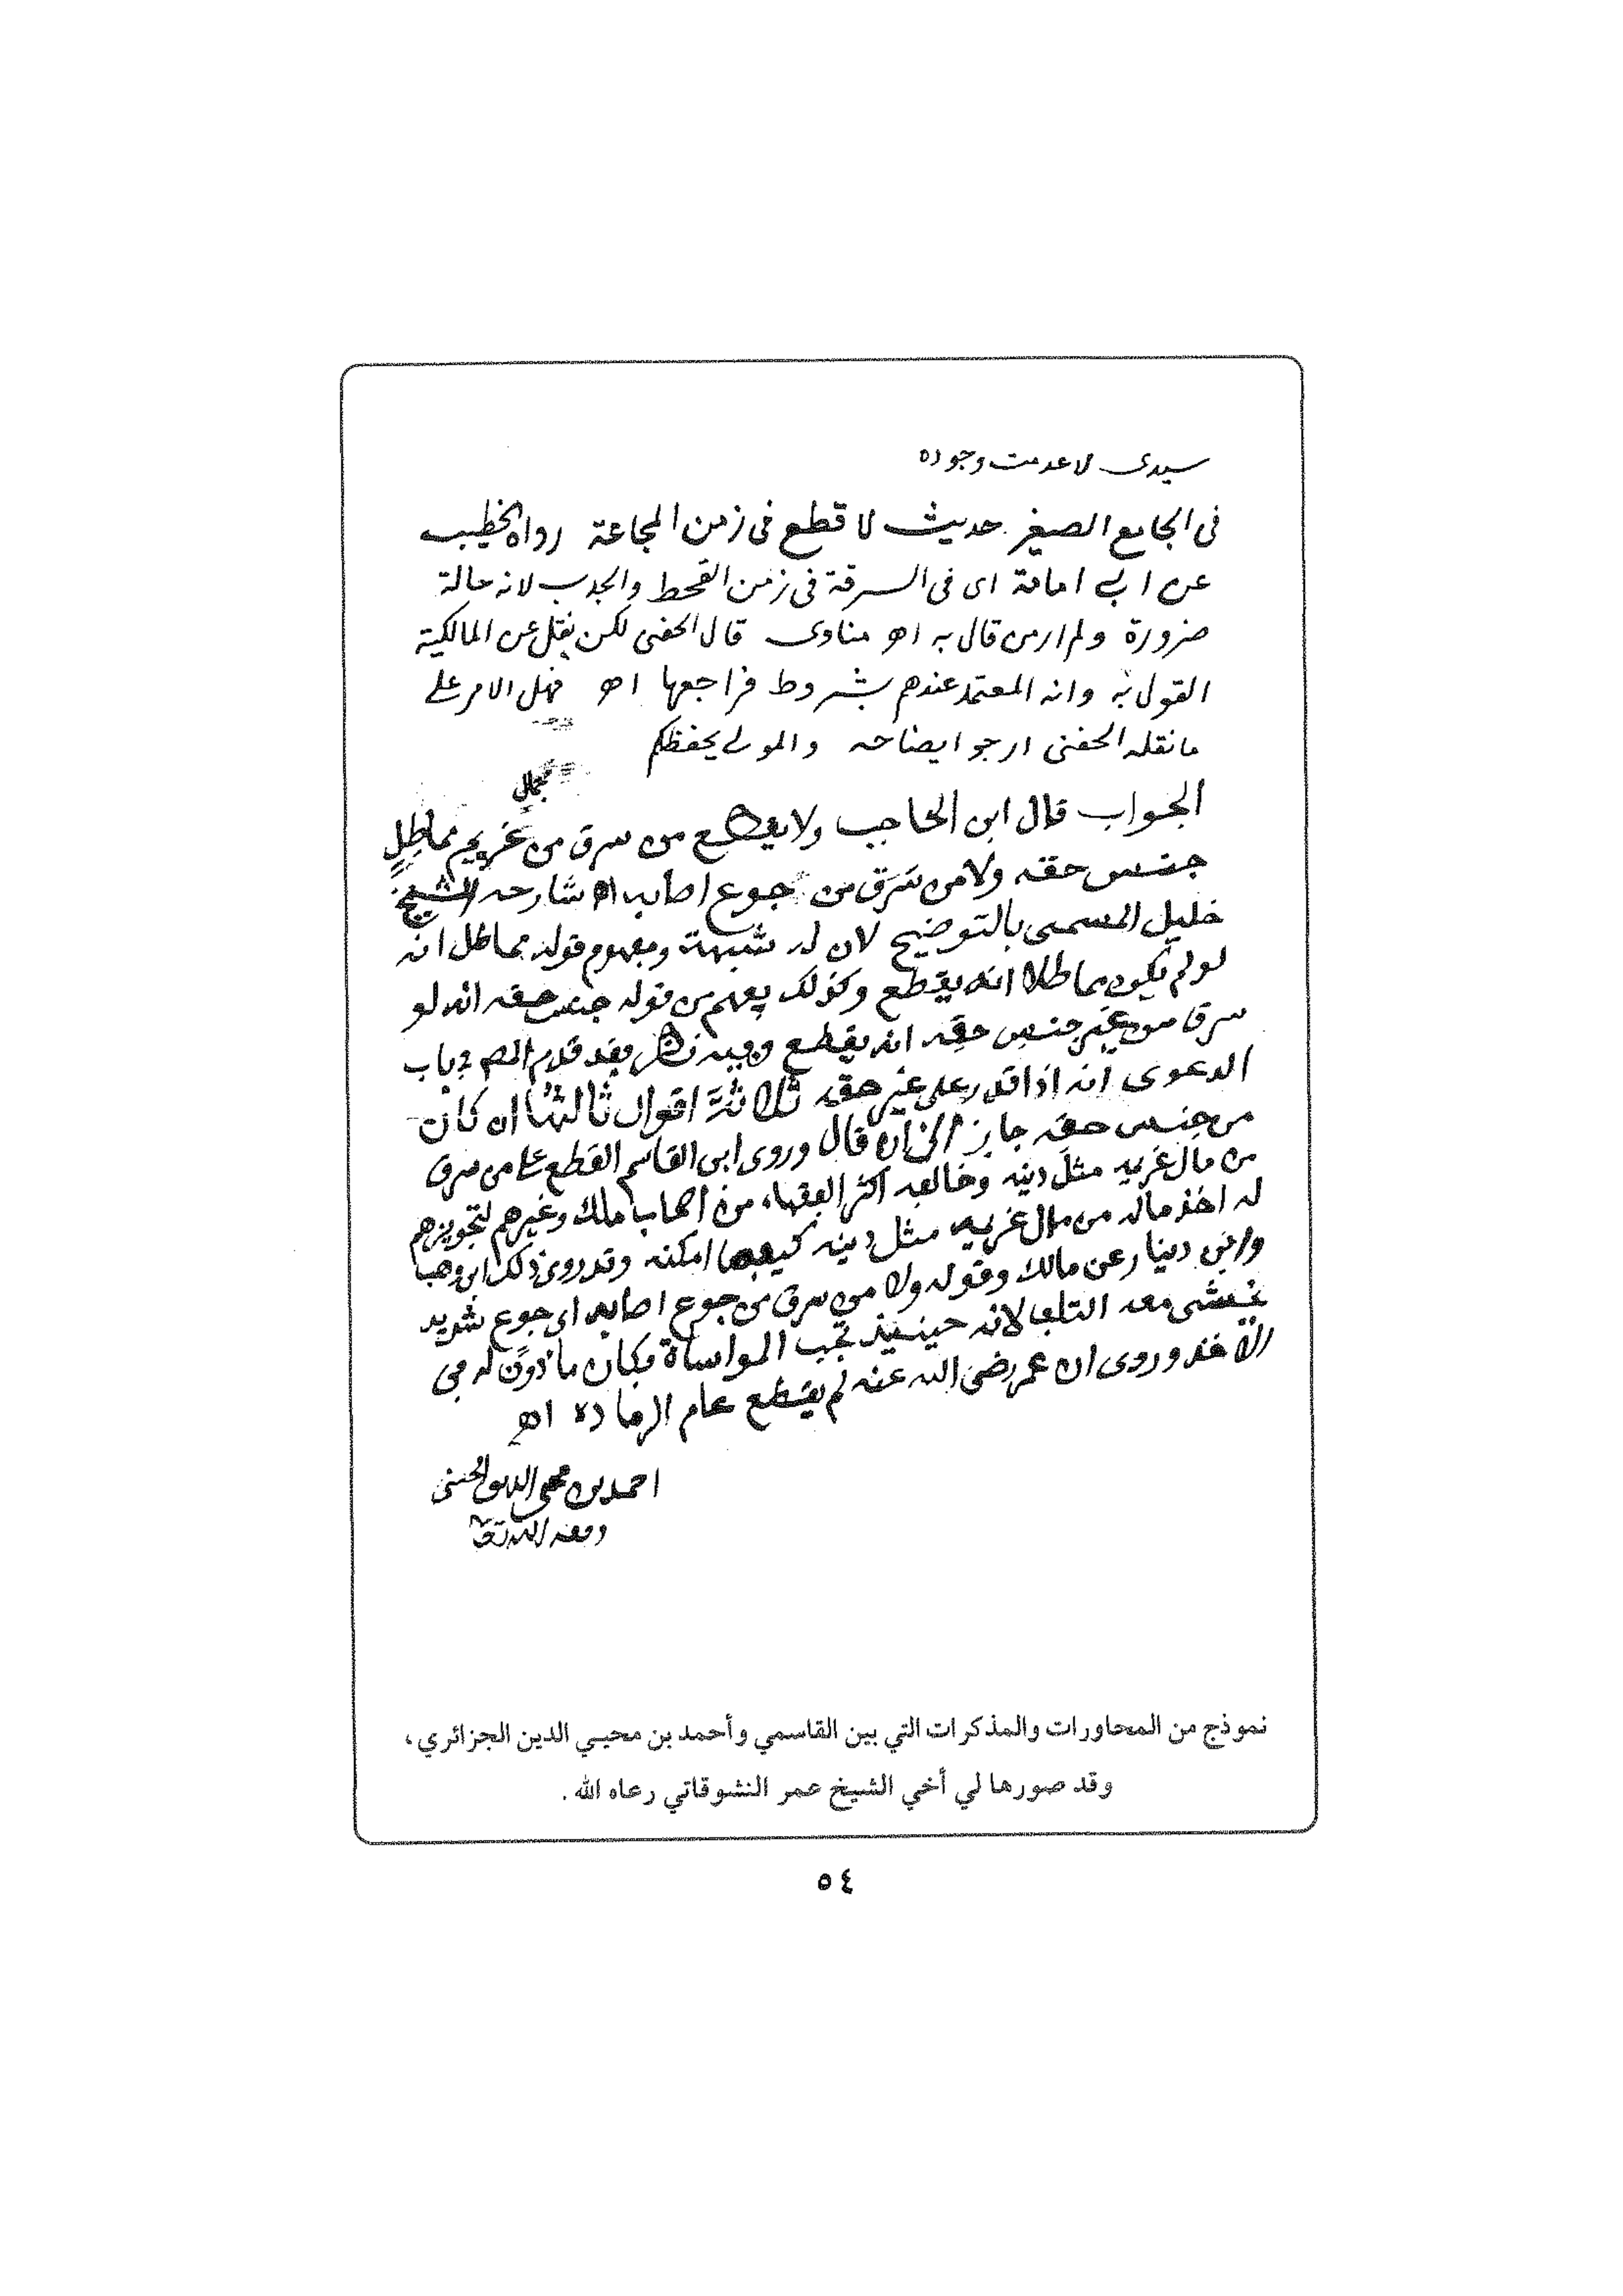 سيدى لا عدمت وجوده
فى الجامع الصغير حديث لا قطع فى زمن المجاعة رواه الخطيب
عن ابى امامة اى فى السرقة فى زمن القحط والجدب لانه حالة
ضرورة ولم ار من قال به اهـ مناوى قال الحفنى لكن نقل عن المالكية
القول به وانه المعتمد عندهم بشروط فراجعها اهـ فهل الامر على
ما نقله الحفنى ارجو ايضاحه والمولى يحفظكم
جمال
الجواب قال ابن الحاجب ولا يقطع من سرق من غريم مماطل
جنس حقه ولا من سرق من جوع اصابه اهـ شارحه الشيخ
خليل المسمى بالتوضيح لان له شبهة ومفهوم قوله مماطل انه
لو لم يكن مماطلا انه يقطع وكذلك يفهم من قوله جنس حقه انه لو
سرق من غير جنس حقه انه يقطع وفيه نظر فقد قدم المص فى باب
الدعوى انه اذا قدر على غير حقه ثلاثة اقوال ثالثها ان كان
من جنس حقه جاز الى ان قال وروى ابن القاسم القطع على من سرق
من مال غريمه مثل دينه وخالفه اكثر الفقهاء من اصحاب ملك وغيرهم لتجويزهم
له اخذ ماله من مال غريمه مثل دينه كيفما امكنه وقد روى ذلك ابن وهب
وابن دينار عن مالك وقوله ولا من سرق من جوع اصابه اى جوع شديد
يخشى معه التلف لانه حينئذ تجب المواساة فكان ماذون له فى
الاخذ وروى ان عمر رضى الله عنه لم يقطع عام الرمادة اهـ
احمد بن محى الدين الحسنى
وفقه الله تعـ
نموذج من المحاورات والمذكرات التي بين القاسمي وأحمد بن محيـي الدين الجزائري،
وقد صورها لي أخي الشيخ عمر النشوقاتي رعاه الله .
٥٤